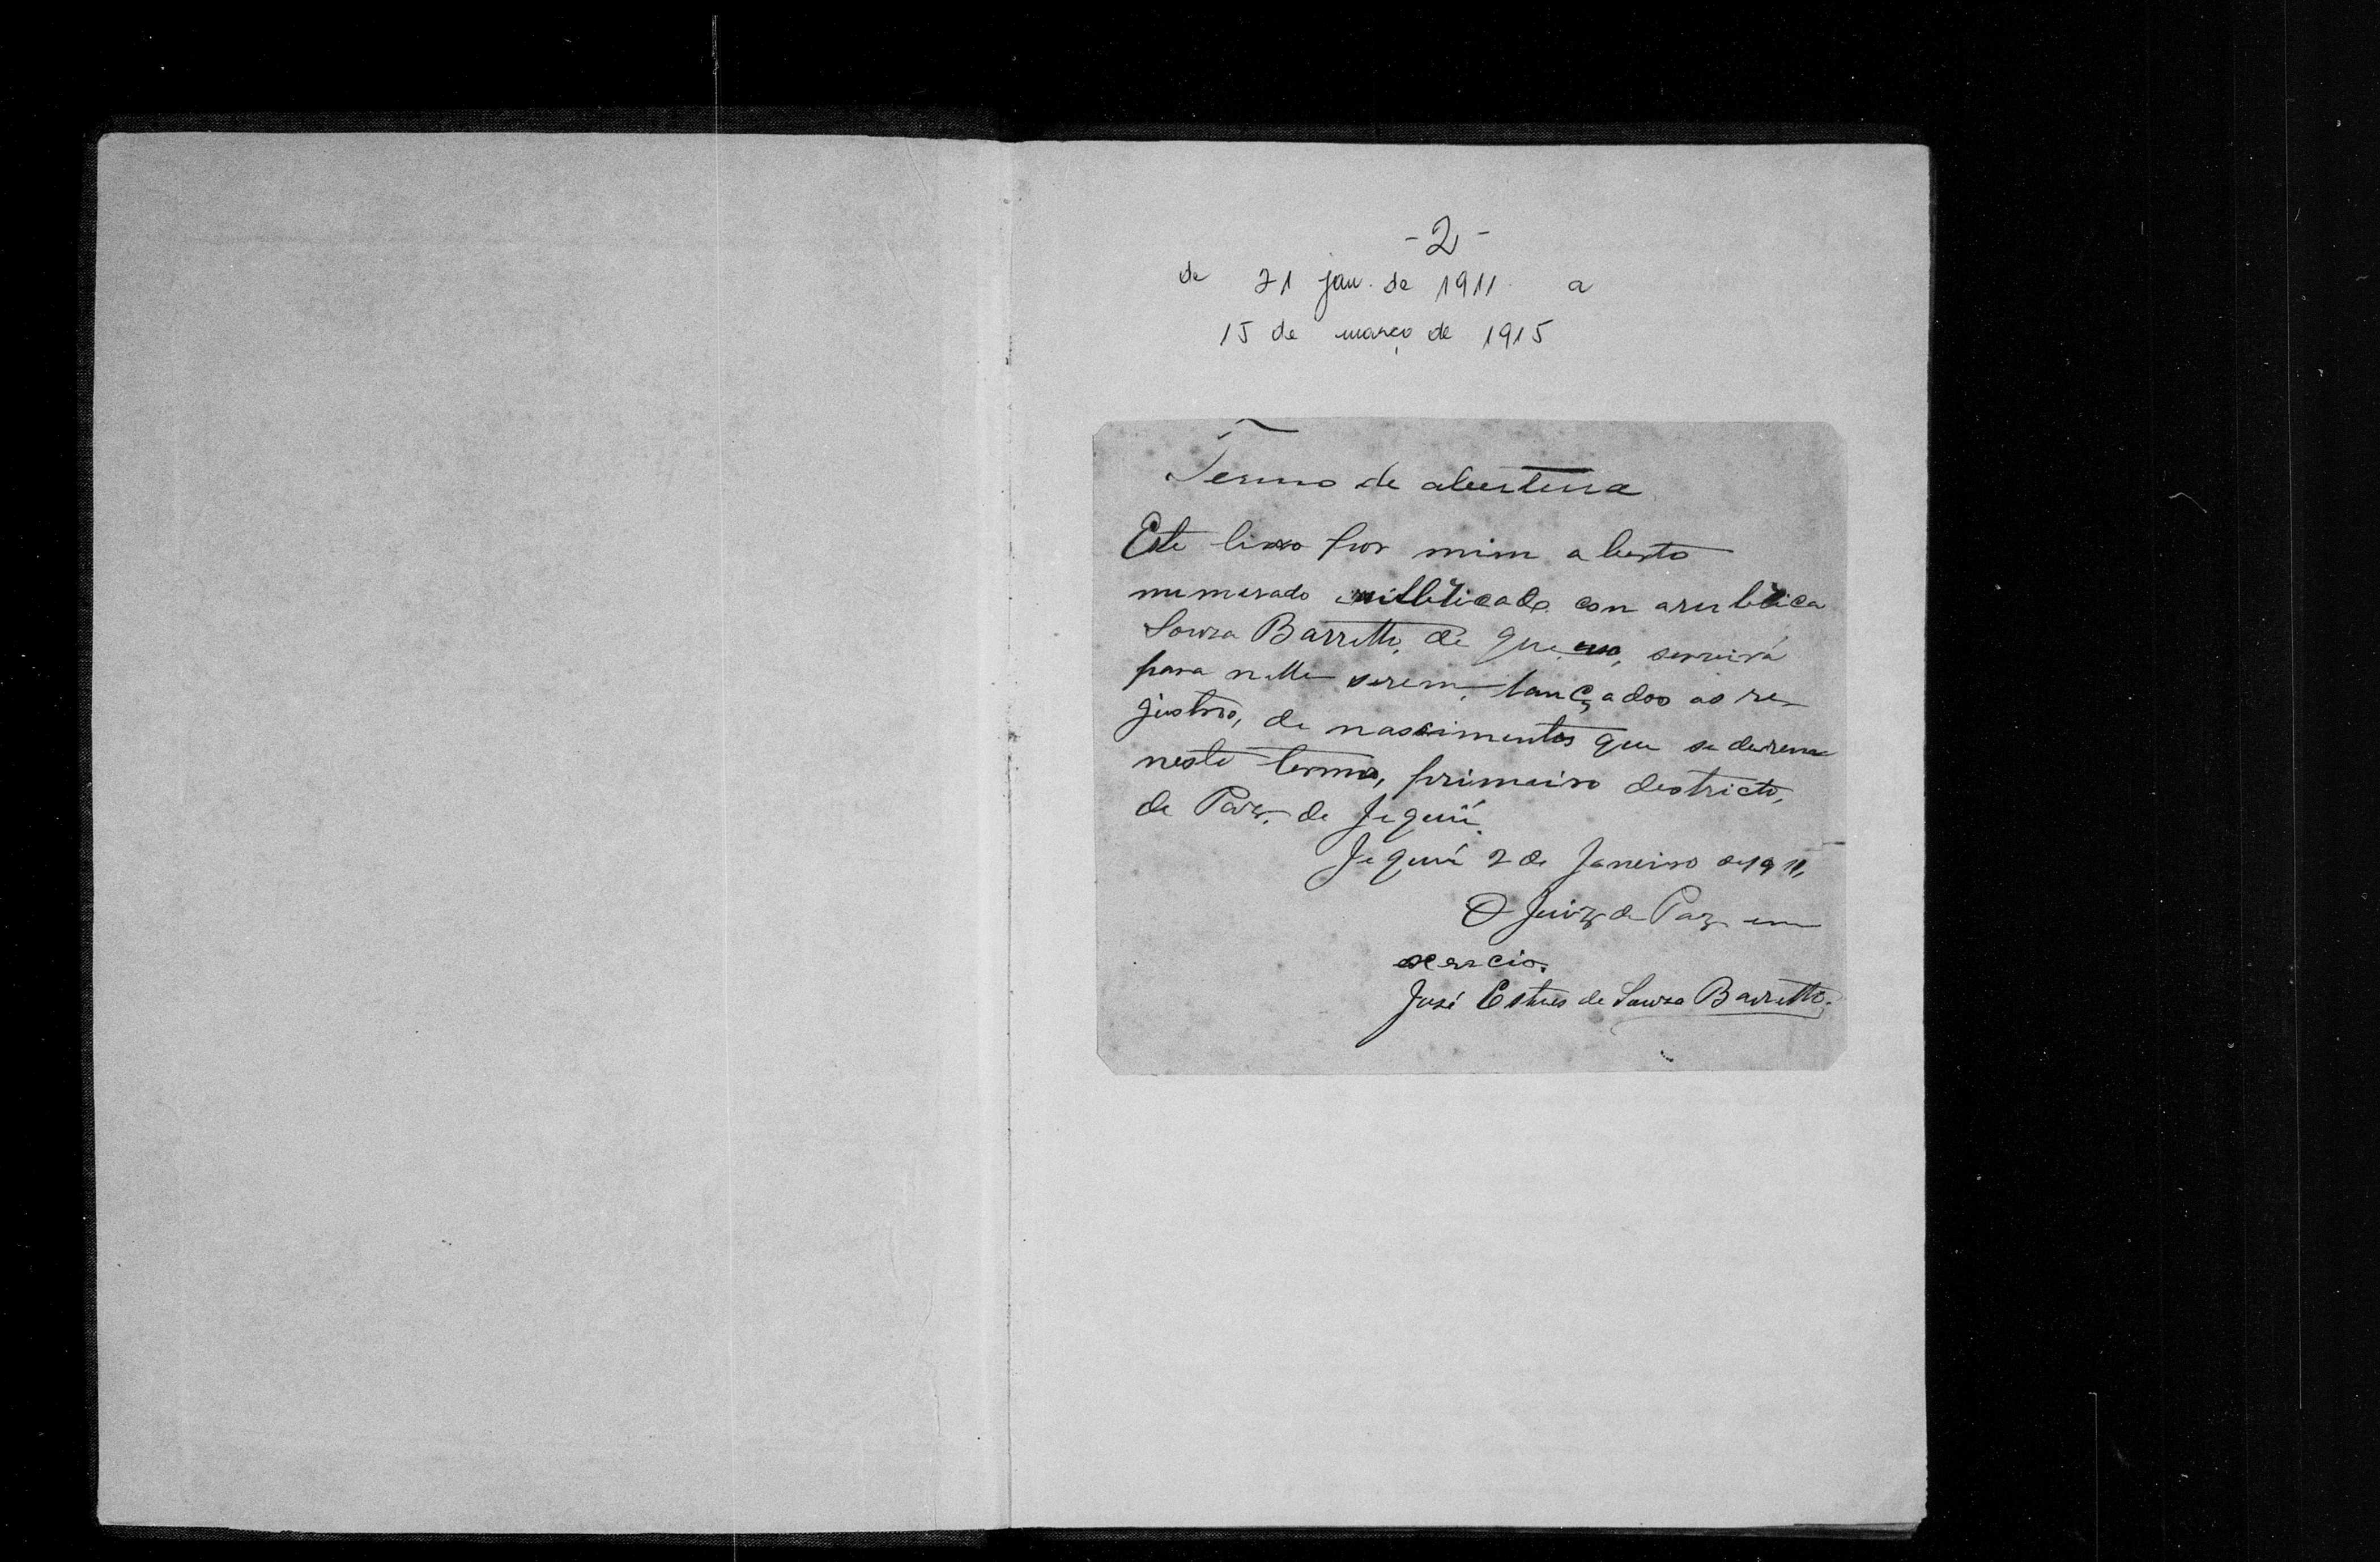 - 2 -
de 21 jan. de 1911. a
15 de março de 1915
Termo de abertura
Este livro por mim aberto
numerado e rubricado com a rubrica
Souza Barretto, de que uso, servirá
para nelle serem lançados os re-
gistros, de nascimentos que se derem
neste termo, primeiro destricto,
de Paz de Jequié.
Jequié 2 de Janeiro de 1911,
O Juiz de Paz em
exercio.
José Esteves de Souza Barretto.